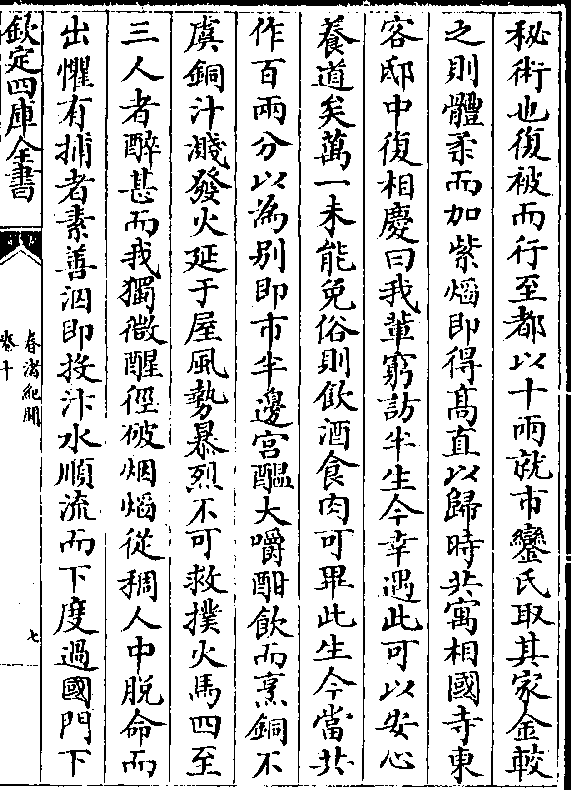 秘術也復被而行至都以十兩就市鑾氏取其家金較
之則體柔而加紫熖即得髙直以歸時共寓相國寺東
客邸中復相慶曰我輩窮訪半生今幸遇此可以安心
養道矣萬一未能免俗則飲酒食肉可畢此生今當共
作百兩分以為别即市半邊官醖大嚼酣飲而烹銅不
虞銅汁濺發火延于屋風勢暴烈不可救撲火馬四至
三人者醉甚而我獨微醒徑破烟熖從稠人中脱命而
出懼有捕者素善泅即投汴水順流而下度過國門下
欽定四庫全書
春渚紀聞
卷十
七